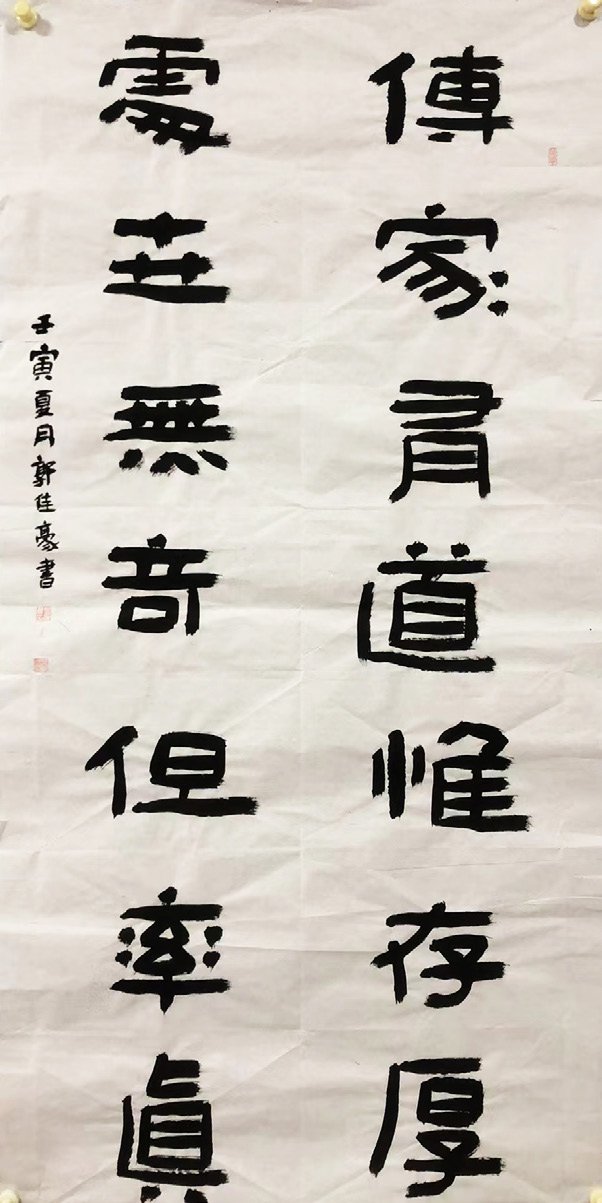 傳家有道惟存厚
處世無奇但率真
壬寅夏月郭佳豪書